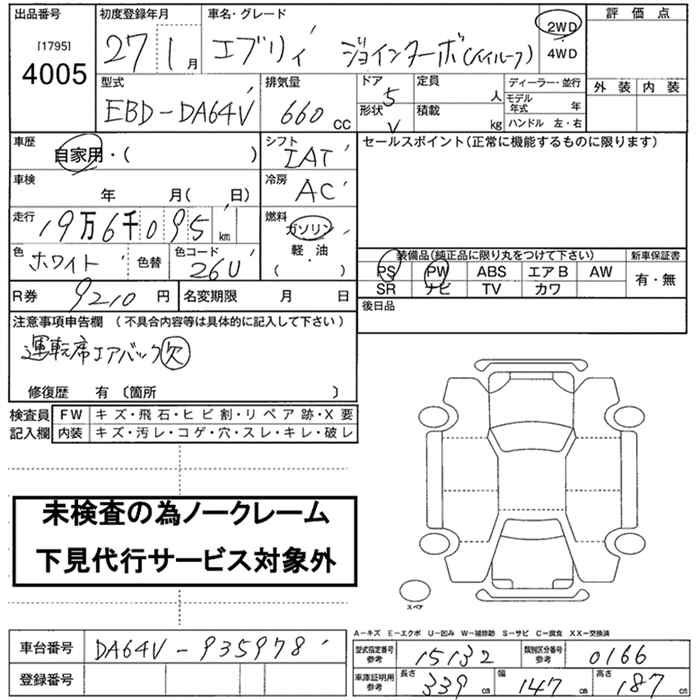 出品番号 初度登録年月 車名・グレード 評価点
[1795] 4005 27年1月 エブリィ ジョインターボ(ハイルーフ) 2WD 4WD
外装 内装
型式 排気量 ドア 定員 ディーラー・並行
EBD-DA64V 660 CC 5 人 モデル年式 年
形状 V 積載 kg ハンドル 左・右
車歴 シフト セールスポイント(正常に機能するものに限ります)
自家用・( ) IAT
車検 冷房
年 月(日) AC
走行 燃料
19万6千095 km ガソリン
軽・油
( )
色 色替 色コード
ホワイト 26U
装備品(純正品に限り丸をつけて下さい) 新車保証書
PS PW ABS エアB AW 有・無
SR ナビ TV カワ
R券 9210 円 名変期限 月 日 後日品
注意事項申告欄 (不具合内容等は具体的に記入して下さい)
運転席エアバック欠
修復歴 有〔箇所 〕
検査員記入欄 FW キズ・飛石・ヒビ割・リペア跡・X要
内装 キズ・汚レ・コゲ・穴・スレ・キレ・破レ
未検査の為ノークレーム
下見代行サービス対象外
スペア
A-キズ E-エクボ U-凹み W-補修跡 S-サビ C-腐食 XX-交換済
車台番号 DA64V-935978
登録番号
型式指定番号 参考 15132 類別区分番号 参考 0166
車庫証明用 参考 長さ 339 cm 幅 147 cm 高さ 187 cm